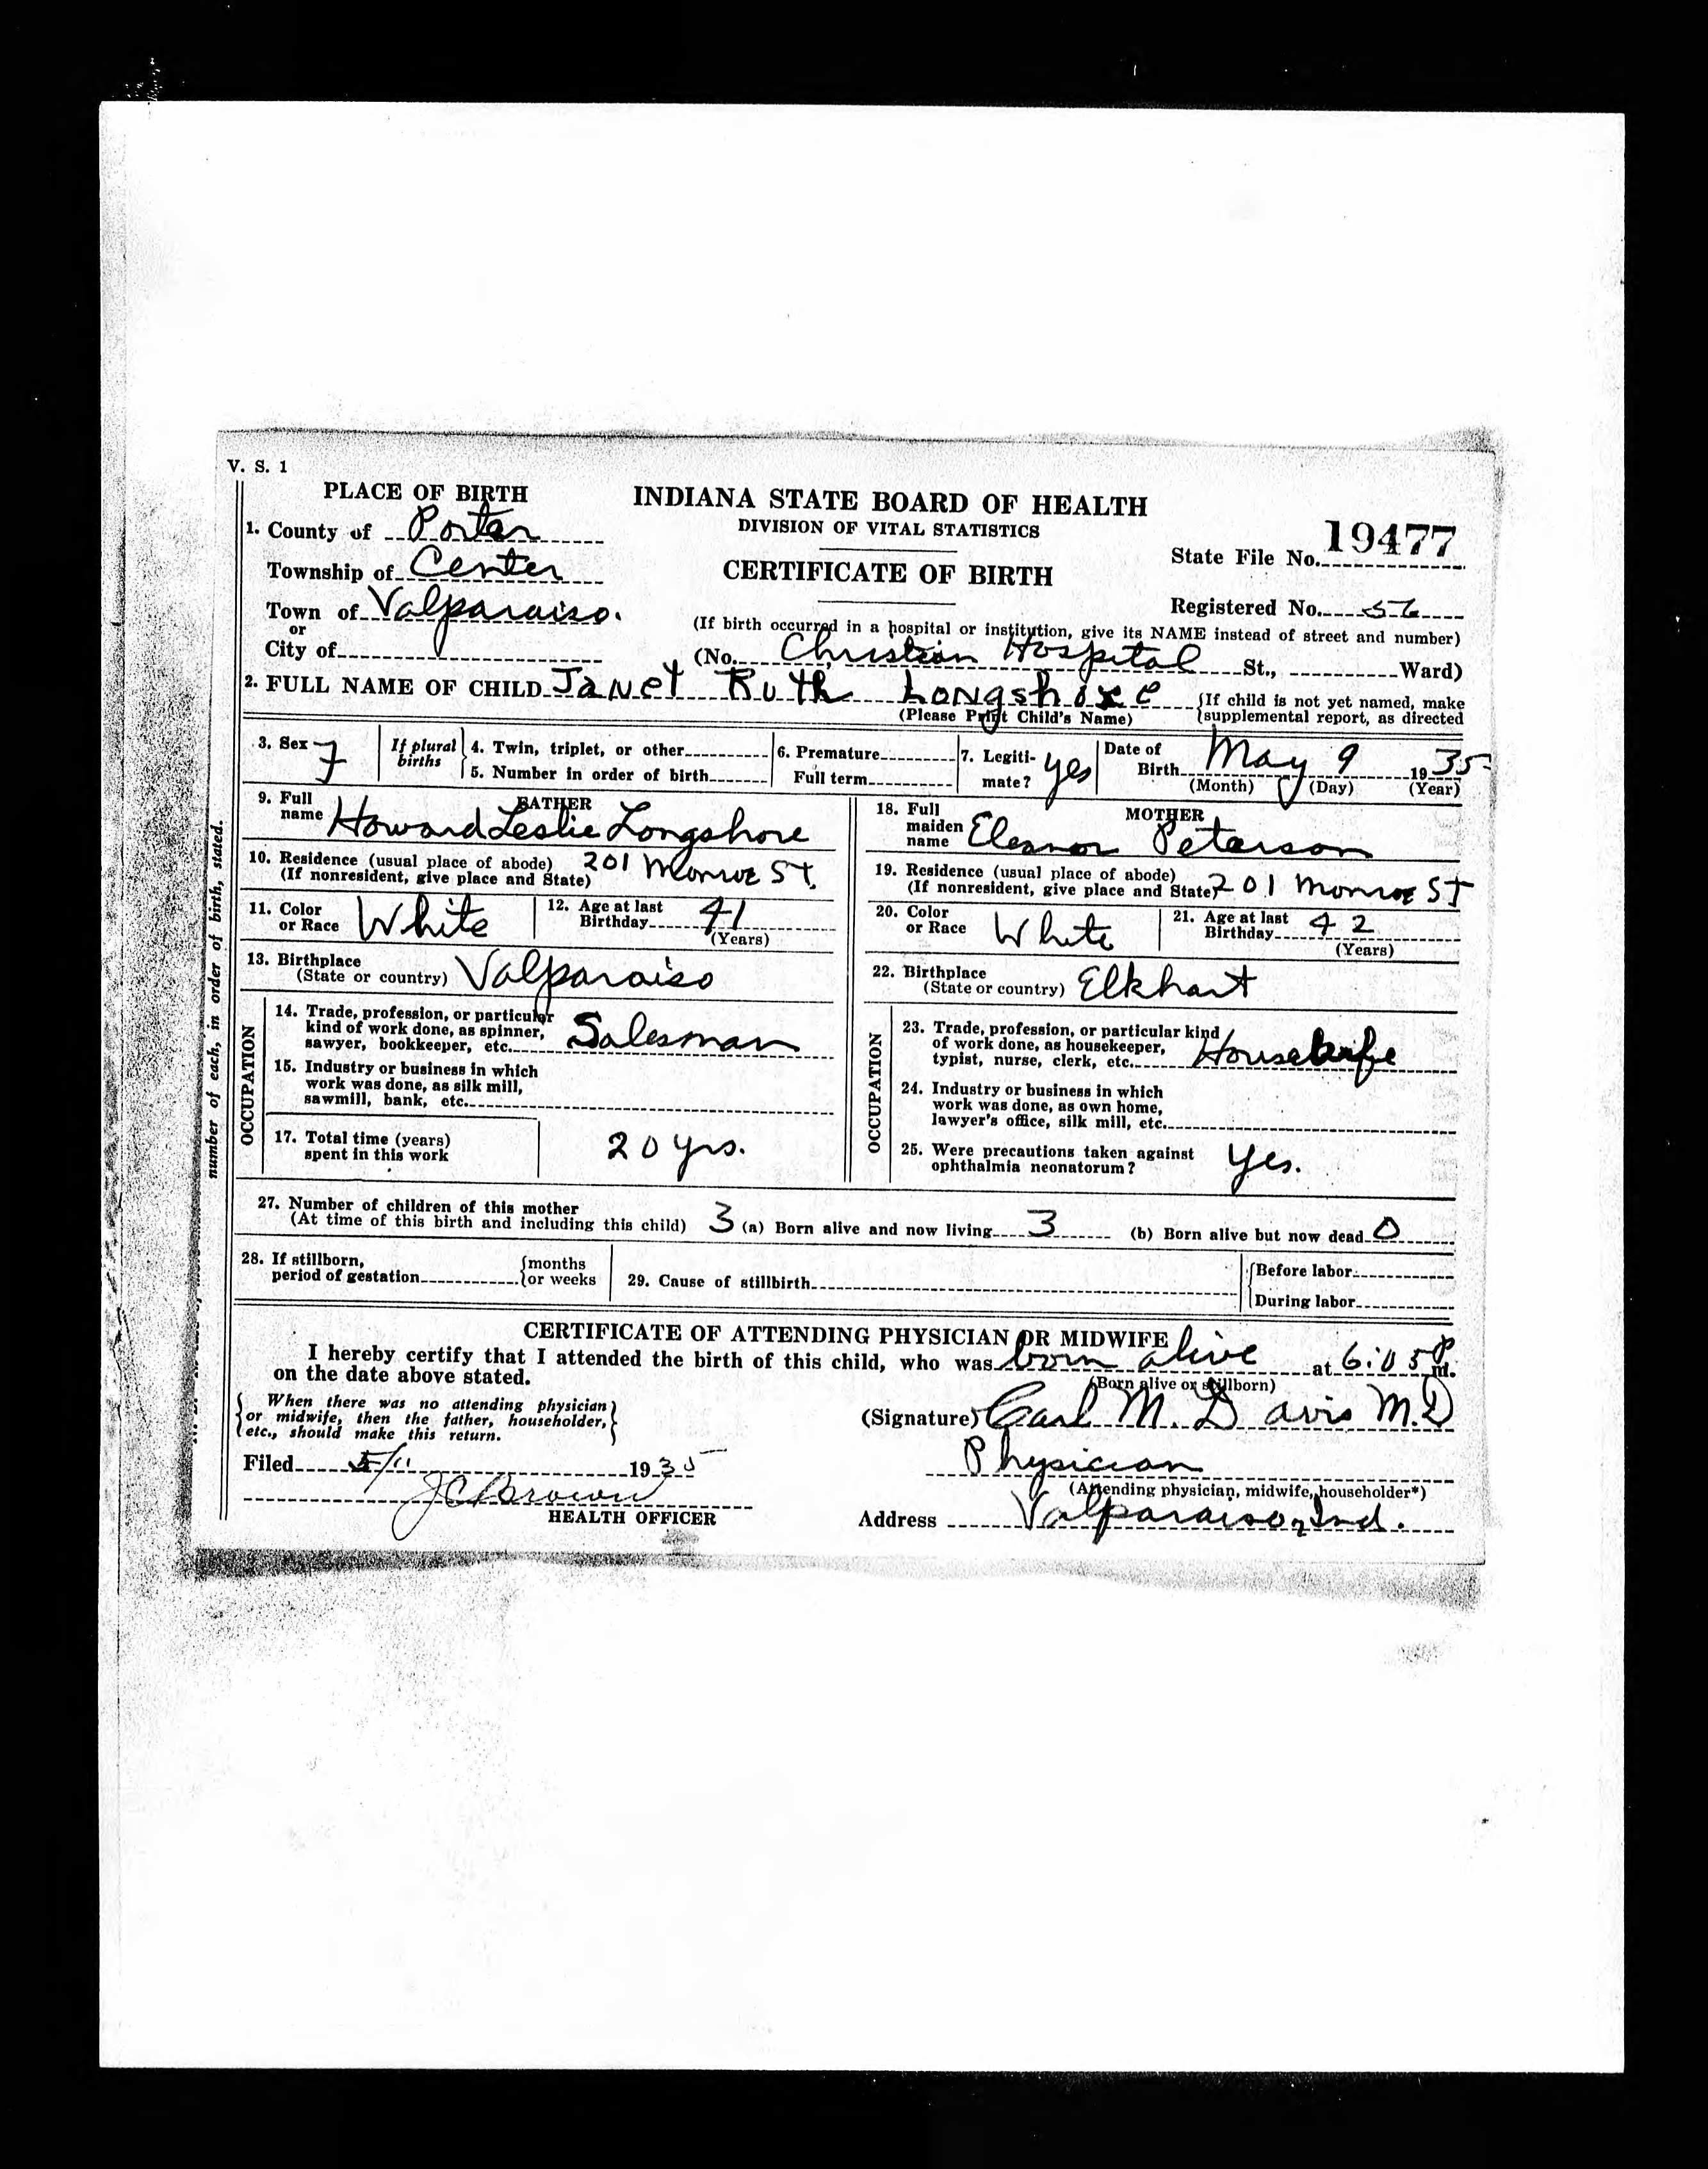 V. S. 1
PLACE OF BIRTH
1. County of Porter
Township of Center
Town of Valparaiso.
or
City of
INDIANA STATE BOARD OF HEALTH
DIVISION OF VITAL STATISTICS
CERTIFICATE OF BIRTH
State File No. 19477
Registered No. 56
(If birth occurred in a hospital or institution, give its NAME instead of street and number)
(No. Christian Hospital St., Ward)
2. FULL NAME OF CHILD Janet Ruth Longshore {If child is not yet named, make
(Please Print Child's Name) supplemental report, as directed
3. Sex F
If plural births
4. Twin, triplet, or other
5. Number in order of birth
6. Premature
Full term
7. Legitimate? yes
Date of Birth May 9 1935
(Month) (Day) (Year)
FATHER
9. Full name Howard Leslie Longshore
10. Residence (usual place of abode) 201 Monroe St.
(If nonresident, give place and State)
11. Color or Race White
12. Age at last Birthday 41
(Years)
13. Birthplace
(State or country) Valparaiso
OCCUPATION
14. Trade, profession, or particular
kind of work done, as spinner,
sawyer, bookkeeper, etc. Salesman
15. Industry or business in which
work was done, as silk mill,
sawmill, bank, etc.
17. Total time (years)
spent in this work 20 yrs.
MOTHER
18. Full maiden name Eleanor Peterson
19. Residence (usual place of abode)
(If nonresident, give place and State) 201 Monroe St
20. Color or Race White
21. Age at last Birthday 42
(Years)
22. Birthplace
(State or country) Elkhart
OCCUPATION
23. Trade, profession, or particular kind
of work done, as housekeeper,
typist, nurse, clerk, etc. Housewife
24. Industry or business in which
work was done, as own home,
lawyer's office, silk mill, etc.
25. Were precautions taken against
ophthalmia neonatorum? Yes.
27. Number of children of this mother
(At time of this birth and including this child) 3 (a) Born alive and now living 3 (b) Born alive but now dead 0
28. If stillborn,
period of gestation {months
or weeks
29. Cause of stillbirth
{Before labor
During labor
CERTIFICATE OF ATTENDING PHYSICIAN OR MIDWIFE
I hereby certify that I attended the birth of this child, who was born alive at 6:05 P m.
on the date above stated.
(Born alive or stillborn)
{When there was no attending physician
or midwife, then the father, householder,
etc., should make this return.}
(Signature) Carl M. Davis M.D
Physician
(Attending physician, midwife, householder*)
Address Valparaiso, Ind.
Filed 5/11 1935
J C Brown
HEALTH OFFICER
number of each, in order of birth, stated.